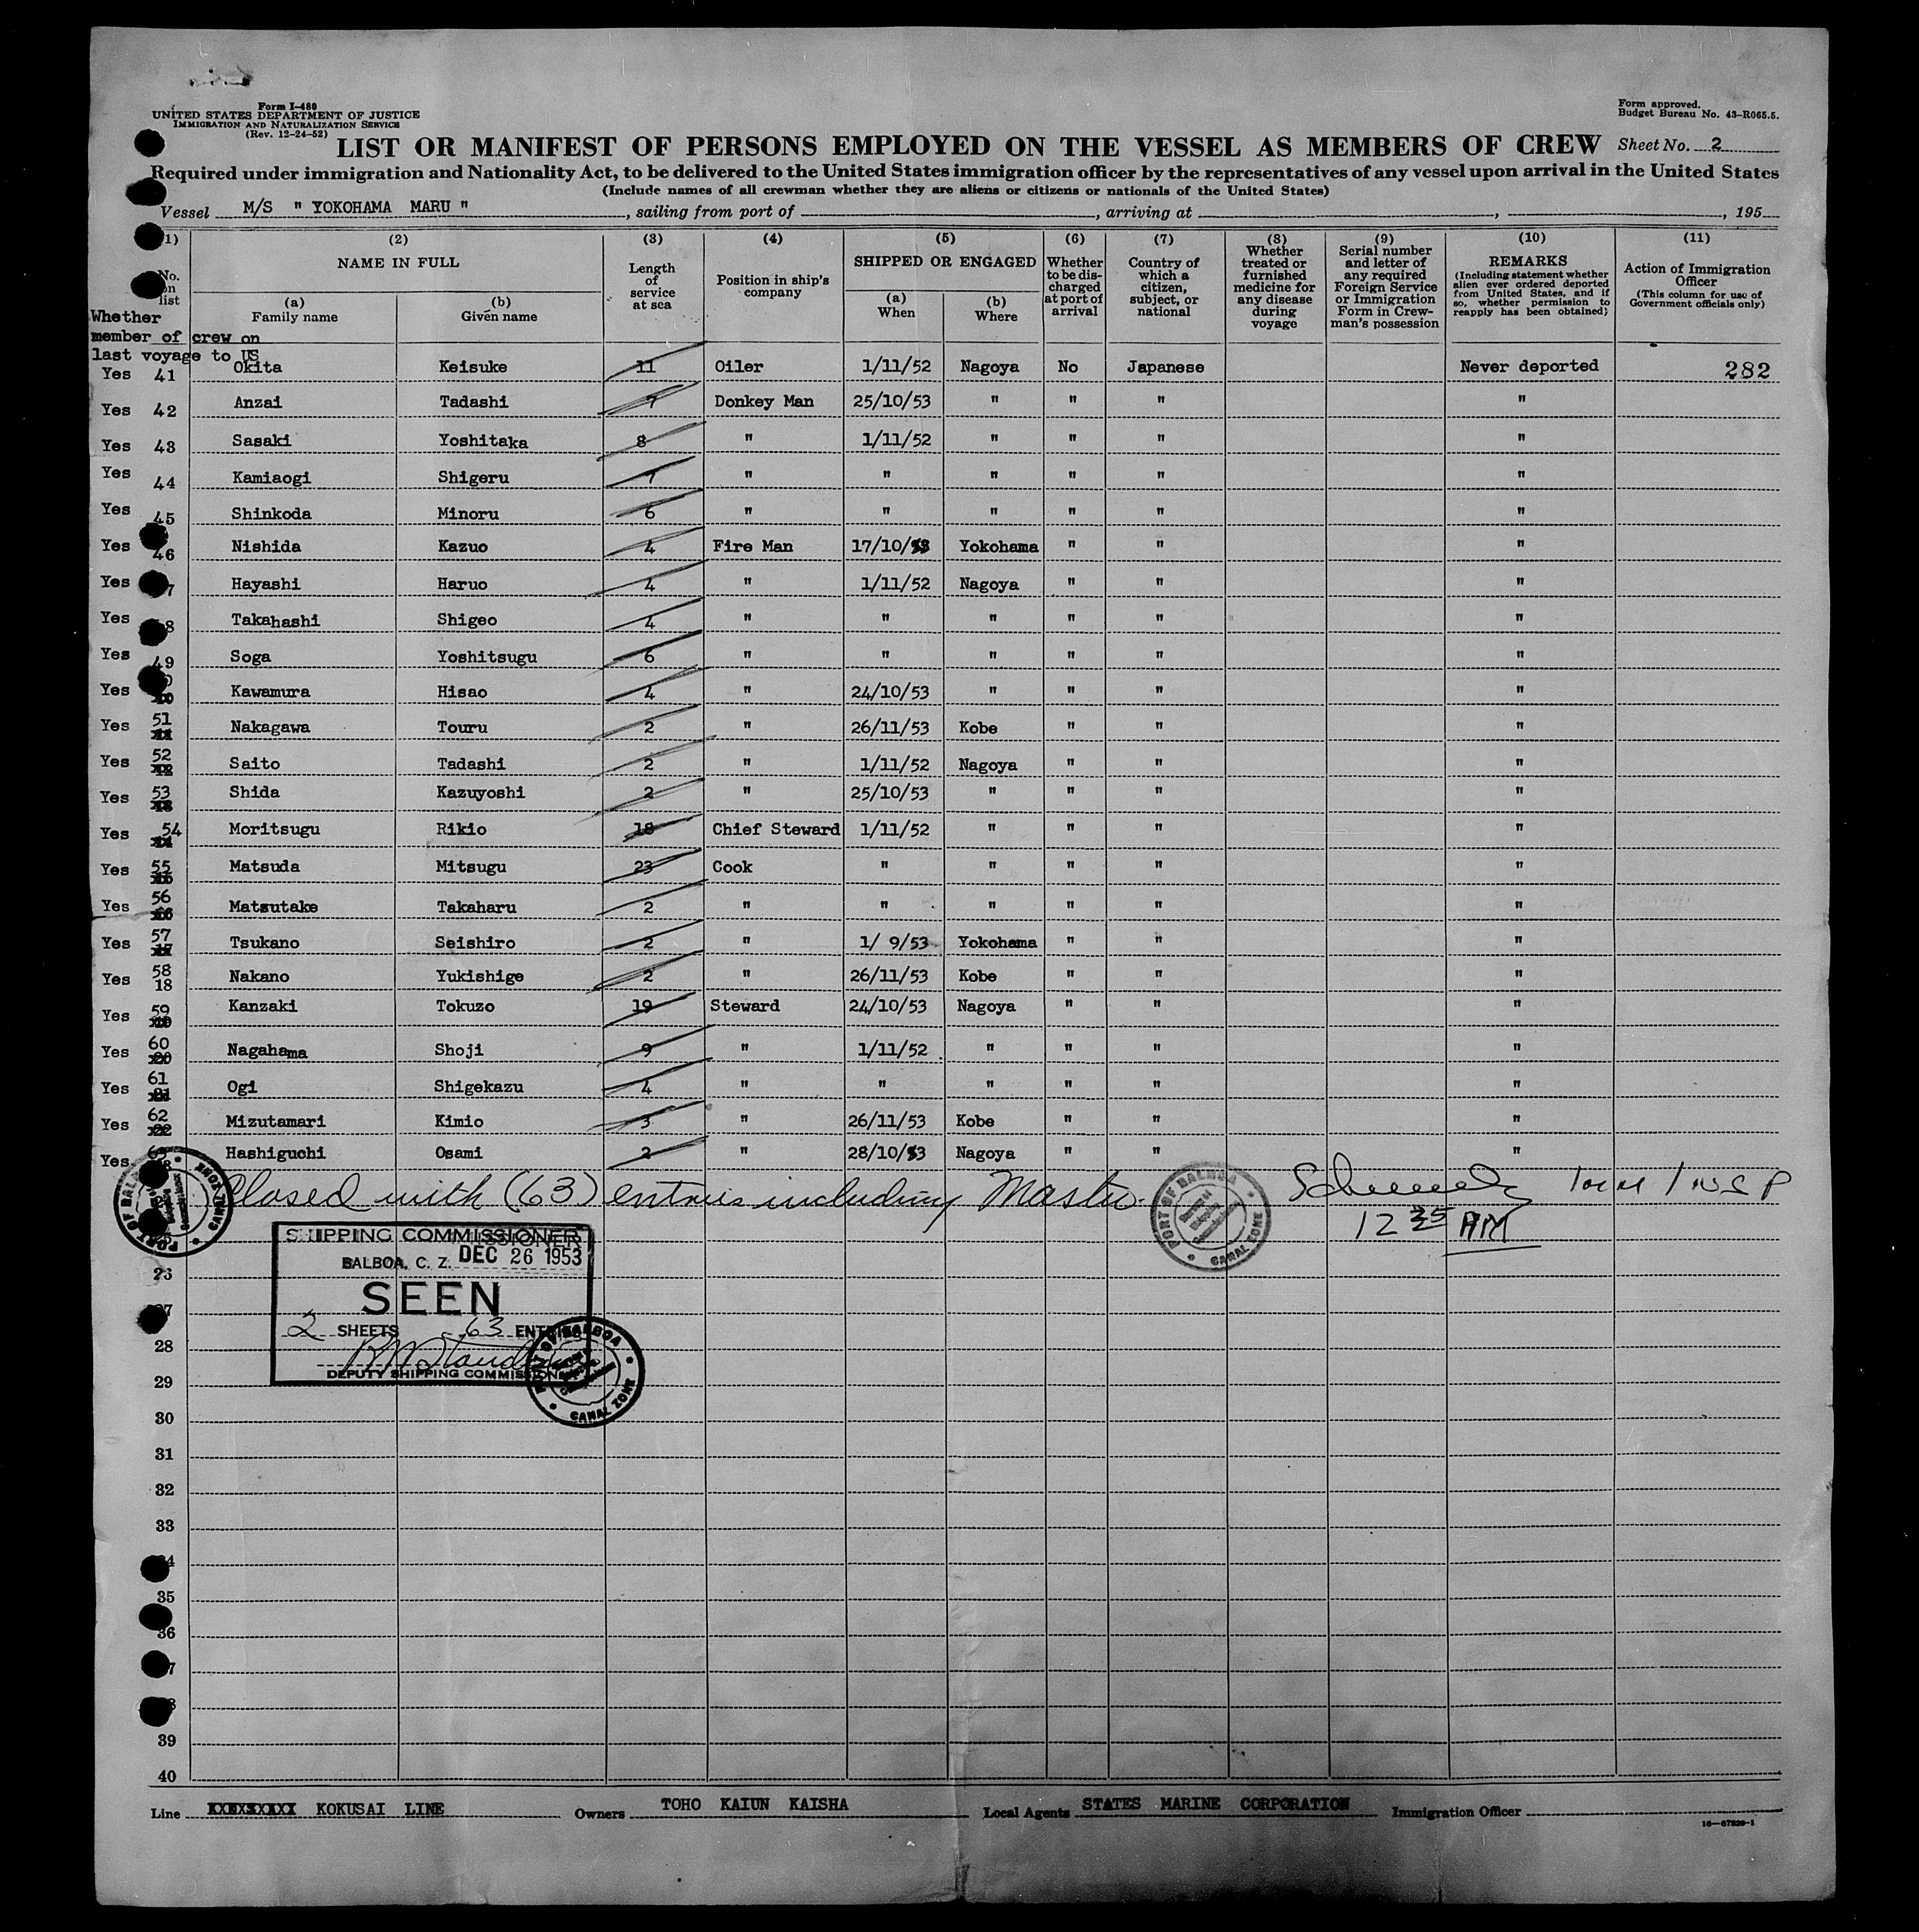 Form I-480
UNITED STATES DEPARTMENT OF JUSTICE
IMMIGRATION AND NATURALIZATION SERVICE
(Rev. 12-24-52)
Form approved.
Budget Bureau No. 43-R065.5.
LIST OR MANIFEST OF PERSONS EMPLOYED ON THE VESSEL AS MEMBERS OF CREW Sheet No. 2
Required under immigration and Nationality Act, to be delivered to the United States immigration officer by the representatives of any vessel upon arrival in the United States
(Include names of all crewman whether they are aliens or citizens or nationals of the United States)
Vessel M/S " YOKOHAMA MARU ", sailing from port of , arriving at , , 195
(1) (2) (3) (4) (5) (6) (7) (8) (9) (10) (11)
No. on list
NAME IN FULL
(a) Family name
(b) Given name
Length of service at sea
Position in ship's company
SHIPPED OR ENGAGED
(a) When
(b) Where
Whether to be discharged at port of arrival
Country of which a citizen, subject, or national
Whether treated or furnished medicine for any disease during voyage
Serial number and letter of any required Foreign Service or Immigration Form in Crewman's possession
REMARKS
(Including statement whether alien ever ordered deported from United States, and if so, whether permission to reapply has been obtained)
Action of Immigration Officer
(This column for use of Government officials only)
Whether member of crew on last voyage to US
Yes 41 Okita Keisuke 11 Oiler 1/11/52 Nagoya No Japanese Never deported 282
Yes 42 Anzai Tadashi 7 Donkey Man 25/10/53 " " " "
Yes 43 Sasaki Yoshitaka 8 " 1/11/52 " " " "
Yes 44 Kamiaogi Shigeru 7 " " " " " "
Yes 45 Shinkoda Minoru 6 " " " " " "
Yes 46 Nishida Kazuo 4 Fire Man 17/10/53 Yokohama " " "
Yes 7 Hayashi Haruo 4 " 1/11/52 Nagoya " " "
Yes 8 Takahashi Shigeo 4 " " " " " "
Yes 49 Soga Yoshitsugu 6 " " " " " "
Yes Kawamura Hisao 4 " 24/10/53 " " " "
Yes 51 Nakagawa Touru 2 " 26/11/53 Kobe " " "
Yes 52 Saito Tadashi 2 " 1/11/52 Nagoya " " "
Yes 53 Shida Kazuyoshi 2 " 25/10/53 " " " "
Yes 54 Moritsugu Rikio 18 Chief Steward 1/11/52 " " " "
Yes 55 Matsuda Mitsugu 23 Cook " " " " "
Yes 56 Matsutake Takaharu 2 " " " " " "
Yes 57 Tsukano Seishiro 2 " 1/ 9/53 Yokohama " " "
Yes 58 18 Nakano Yukishige 2 " 26/11/53 Kobe " " "
Yes 59 Kanzaki Tokuzo 19 Steward 24/10/53 Nagoya " " "
Yes 60 Nagahama Shoji 9 " 1/11/52 " " " "
Yes 61 Ogi Shigekazu 4 " " " " " "
Yes 62 Mizutamari Kimio 3 " 26/11/53 Kobe " " "
Yes Hashiguchi Osami 2 " 28/10/53 Nagoya " " "
Closed with (63) entries including Master.
12 35 AM
PORT OF BALBOA CANAL ZONE
PORT OF BALBOA CANAL ZONE
SHIPPING COMMISSIONER
BALBOA, C. Z. DEC 26 1953
SEEN
2 SHEETS 63 ENTRIES
DEPUTY SHIPPING COMMISSIONER
PORT OF BALBOA CANAL ZONE
26
27
28
29
30
31
32
33
34
35
36
39
40
Line KOKUSAI LINE Owners TOHO KAIUN KAISHA Local Agents STATES MARINE CORPORATION Immigration Officer
16—67829-1